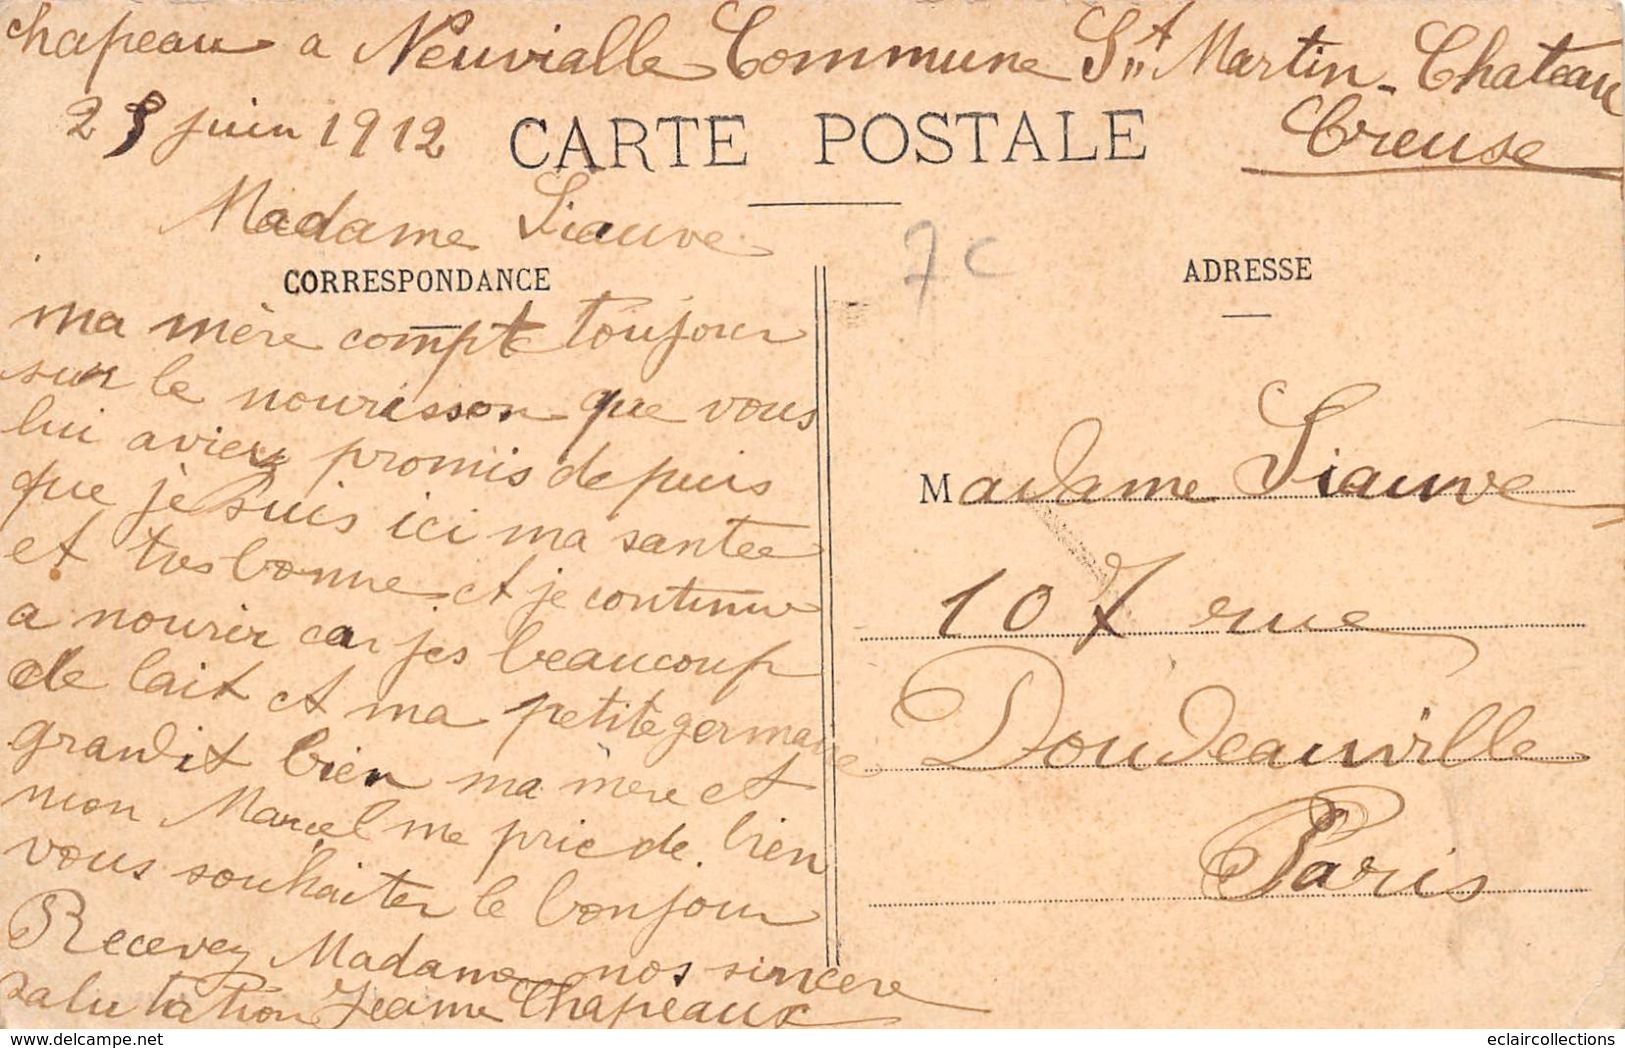 chapeau a Neuvialle Commune St Martin-Chateau
25 juin 1912
CARTE POSTALE
Creuse
Madame Siauve
CORRESPONDANCE
ma mère compte toujour
sur le nourisson que vous
lui aviez promis depuis
que je suis ici ma santée
et tres bonne et je continu
a nourir car jes beaucoup
de lait et ma petite germaine
grandit bien ma mère et
mon Marcel me prie de bien
vous souhaiter le bonjour
Recevez Madame nos sincere
salutation Jeanne Chapeaux
7C
ADRESSE
Madame Siauve
107 rue
Doudeauville
Paris
delcampe.net
eclaircollections